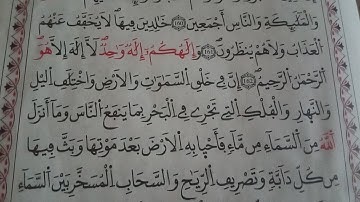 وَالْمَلٰٓئِكَةِ وَالنَّاسِ اَجْمَعِينَ ﴿١٦١﴾ خَالِدِينَ فِيهَا لَا يُخَفَّفُ عَنْهُمُ
الْعَذَابُ وَلَا هُمْ يُنْظَرُونَ ﴿١٦٢﴾ وَاِلٰهُكُمْ اِلٰهٌ وَاحِدٌ لَٓا اِلٰهَ اِلَّا هُوَ
الرَّحْمٰنُ الرَّحِيمُ ﴿١٦٣﴾ اِنَّ فِي خَلْقِ السَّمٰوَاتِ وَالْاَرْضِ وَاخْتِلَافِ الَّيْلِ
وَالنَّهَارِ وَالْفُلْكِ الَّتِي تَجْرِي فِي الْبَحْرِ بِمَا يَنْفَعُ النَّاسَ وَمَٓا اَنْزَلَ
اللّٰهُ مِنَ السَّمَٓاءِ مِنْ مَٓاءٍ فَاَحْيَا بِهِ الْاَرْضَ بَعْدَ مَوْتِهَا وَبَثَّ فِيهَا
مِنْ كُلِّ دَٓابَّةٍ وَتَصْرِيفِ الرِّيَاحِ وَالسَّحَابِ الْمُسَخَّرِ بَيْنَ السَّمَٓاءِ